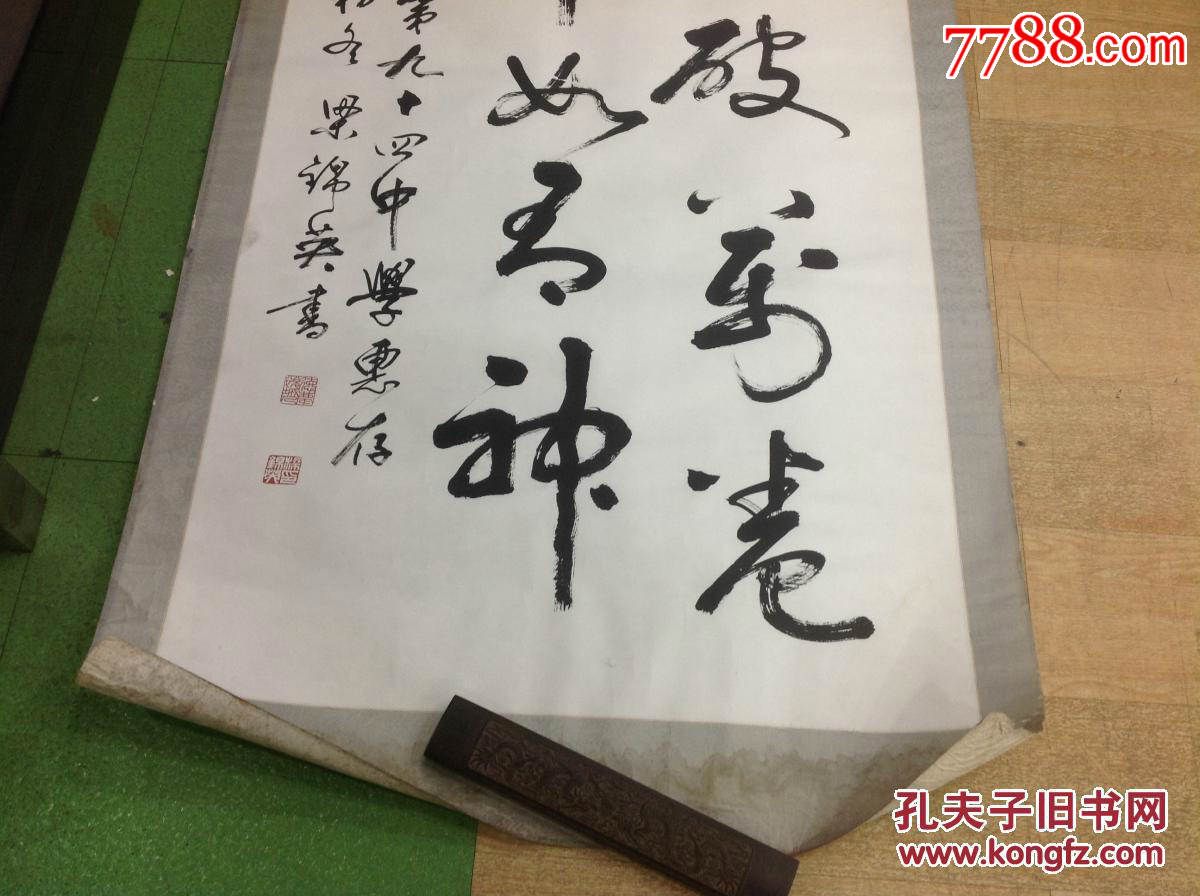 破萬卷
如有神
第九十四中學惠存
冬 梁錦英書
7788.com
孔夫子旧书网
www.kongfz.com